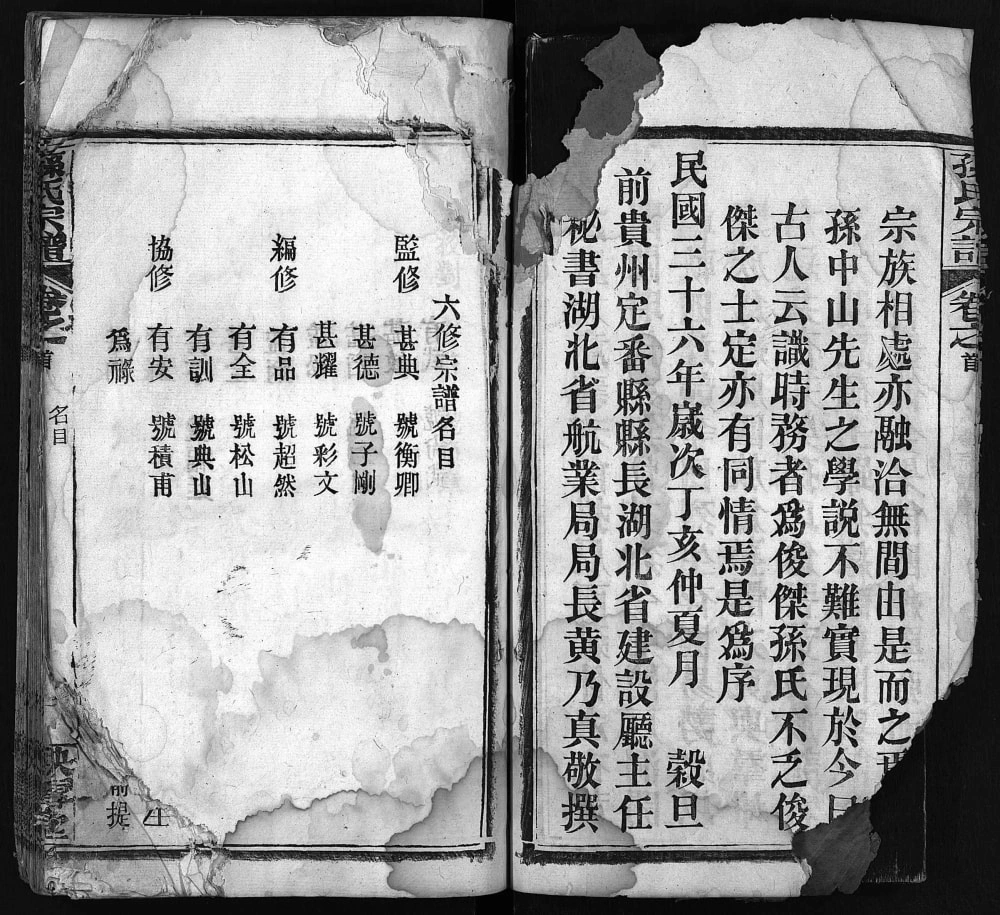 孫氏宗譜
卷之首
宗族相處亦融洽無間由是而之
孫中山先生之學說不難實現於今日
古人云識時務者爲俊傑孫氏不乏俊
傑之士定亦有同情焉是爲序
民國三十六年歲次丁亥仲夏月 穀旦
前貴州定番縣縣長湖北省建設廳主任
秘書湖北省航業局局長黄乃真敬撰
六修宗譜名目
監修 甚典 號衡卿
甚德 號子剛
甚耀 號彩文
編修 有品 號超然
有全 號松山
有訓 號典山
協修 有安 號積甫
爲祿
孫氏宗譜
卷之首
名目
前提